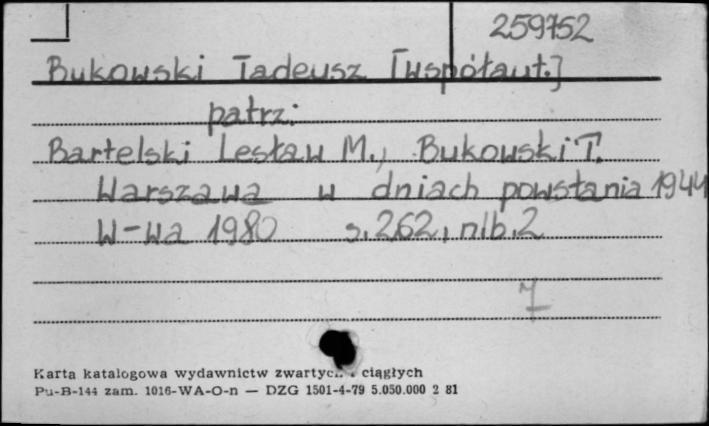 259752
Bukowski Tadeusz [współaut.]
patrz:
Bartelski Lesław M., Bukowski T.
Warszawa w dniach powstania 1944
W-wa 1980 s. 262, nlb. 2
Karta katalogowa wydawnictw zwartych i ciągłych
Pu-B-144 zam. 1016-WA-O-n — DZG 1501-4-79 5.050.000 2 81